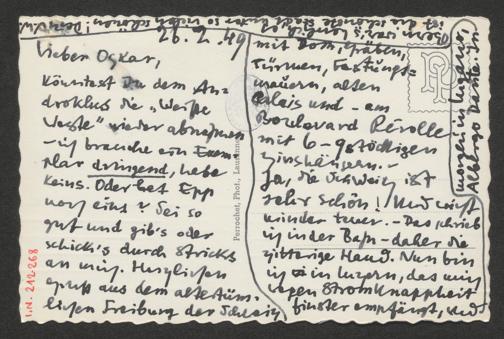 26.2.49
Lieber Oskar,
Könntest Du dem An-
droklus die „Weiße
Weste" wieder abnehmen
– ich brauche ein Exem-
plar dringend, habe
keins. Oder hat Epp
noch eins? Sei so
gut und gib's oder
schick's durch Stricks
an mich. Herzlichen
Gruß aus dem altertüm-
lichen Freiburg der Schweiz
mit Domgräben,
Türmen, Festungs-
mauern, alten
Palais und – am
Boulevard Pérolle
mit 6-gstöckigen
Zinshäusern. –
Ja, die Schweiz ist
sehr schön! Und nicht
minder teuer. – Das schrieb
ich in der Bahn – daher die
zittrige Hand. Nun bin
ich in Luzern, das mich
wegen Stromknappheit
finster empfängt, und
morgen in Lugano,
Albergo
ist die schönste Stadt
Perrochet, Phot., Lausanne
I.N. 212.268